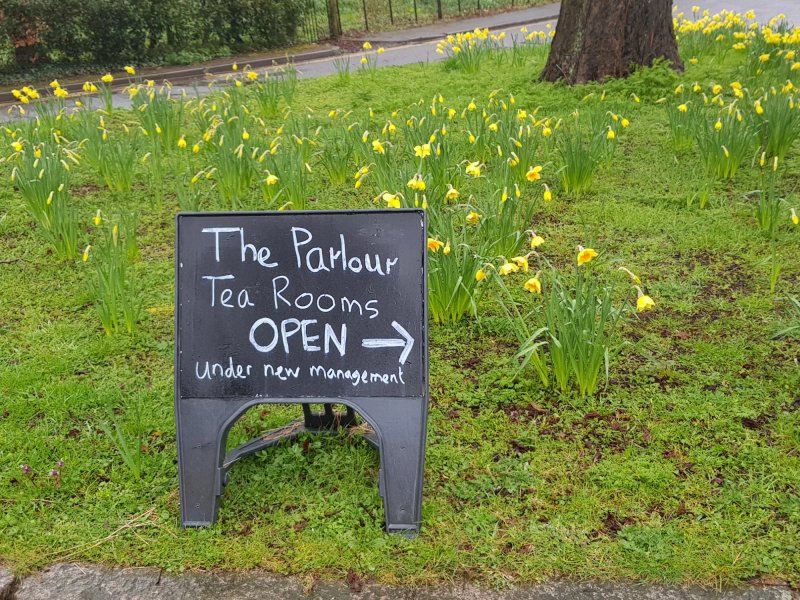 The Parlour
Tea Rooms
OPEN →
under new management